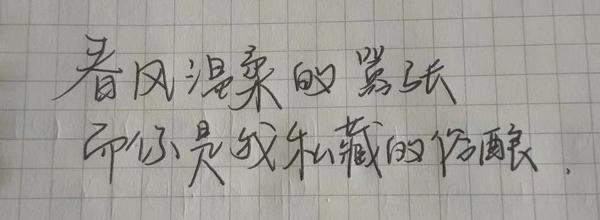 春风温柔的嚣张
而你是我私藏的佳酿.